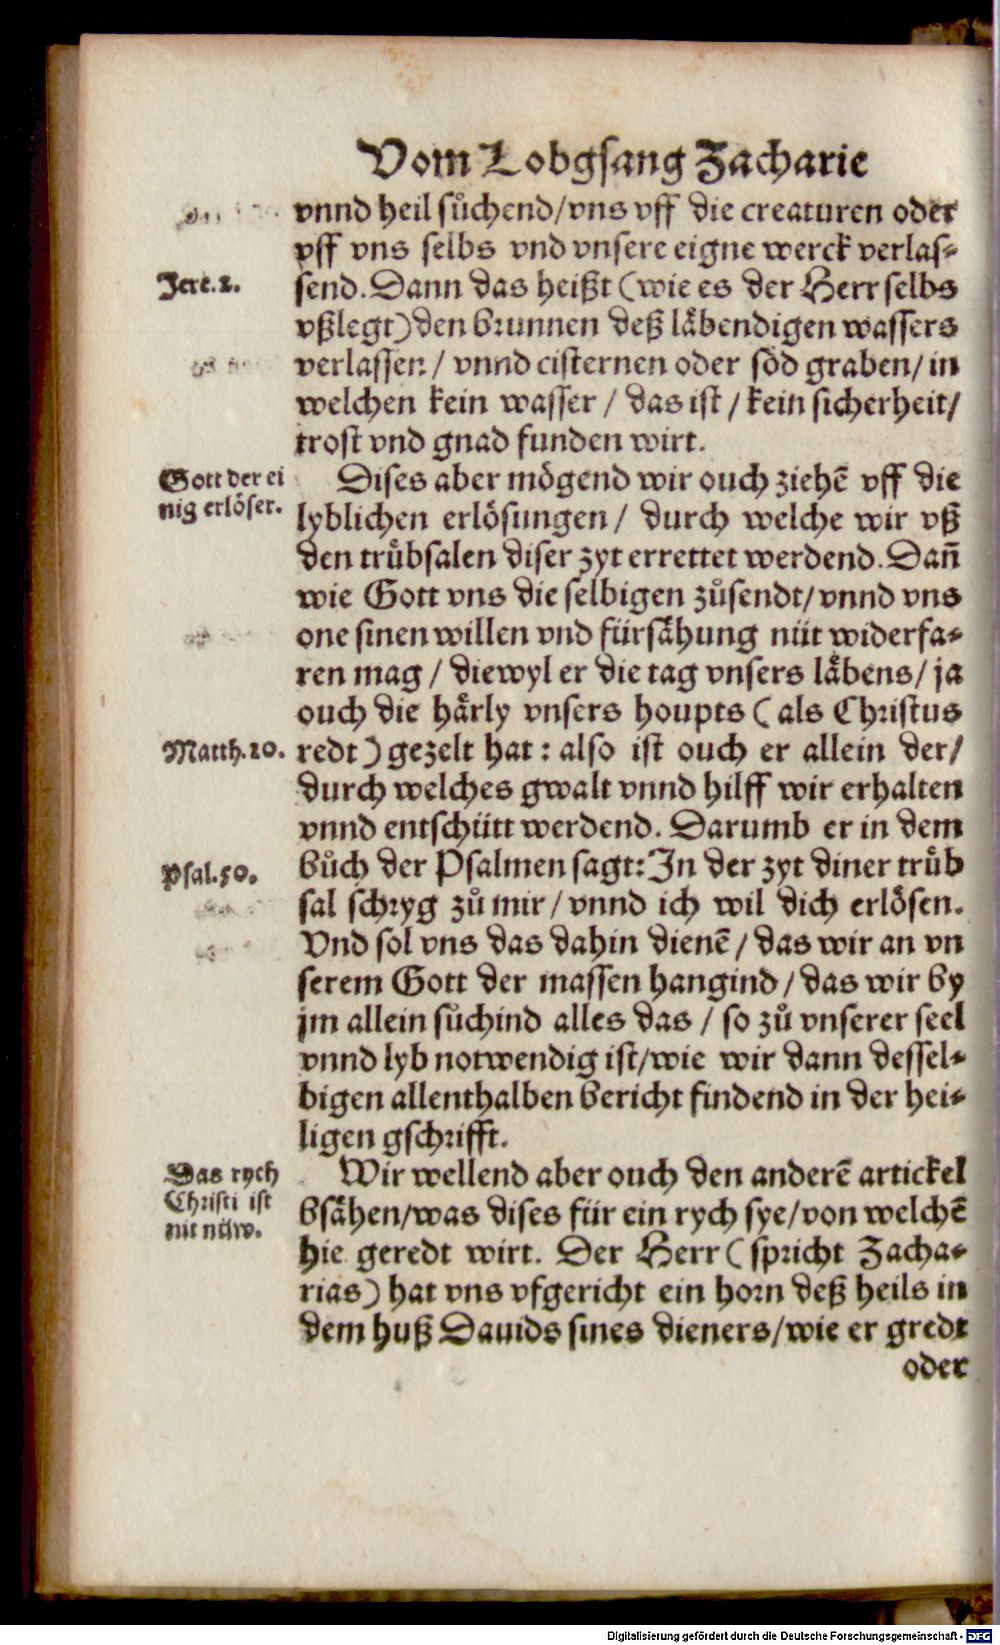 Vom Lobgsang Zacharie
vnnd heil sůchend/vns vff die creaturen oder
vff vns selbs vnd vnsere eigne werck verlas⸗
Jere.2.
send. Dann das heißt (wie es der Herr selbs
vßlegt) den brunnen deß läbendigen wassers
verlassen/ vnnd cisternen oder söd graben/ in
welchen kein wasser / das ist / kein sicherheit/
trost vnd gnad funden wirt.
Gott der ei
nig erlöser.
Dises aber mögend wir ouch ziehē vff die
lyblichen erlösungen/ durch welche wir vß
den trübsalen diser zyt errettet werdend. Dañ
wie Gott vns die selbigen zůsendt/ vnnd vns
one sinen willen vnd fürsähung nüt widerfa⸗
ren mag / diewyl er die tag vnsers läbens/ ja
ouch die härly vnsers houpts ( als Christus
Matth.10.
redt ) gezelt hat : also ist ouch er allein der/
durch welches gwalt vnnd hilff wir erhalten
vnnd entschütt werdend. Darumb er in dem
Psal.50.
bůch der Psalmen sagt: In der zyt diner trüb
sal schryg zů mir / vnnd ich wil dich erlösen.
Vnd sol vns das dahin dienē / das wir an vn
serem Gott der massen hangind / das wir by
jm allein sůchind alles das / so zů vnserer seel
vnnd lyb notwendig ist/wie wir dann dessel⸗
bigen allenthalben bericht findend in der hei⸗
ligen gschrifft.
Das rych
Christi ist
nit nüw.
Wir wellend aber ouch den anderē artickel
bsähen/was dises für ein rych sye/von welchē
hie geredt wirt. Der Herr ( spricht Zacha⸗
rias) hat vns vfgericht ein horn deß heils in
dem huß Dauids sines dieners/wie er gredt
oder
Digitalisierung gefördert durch die Deutsche Forschungsgemeinschaft - DFG